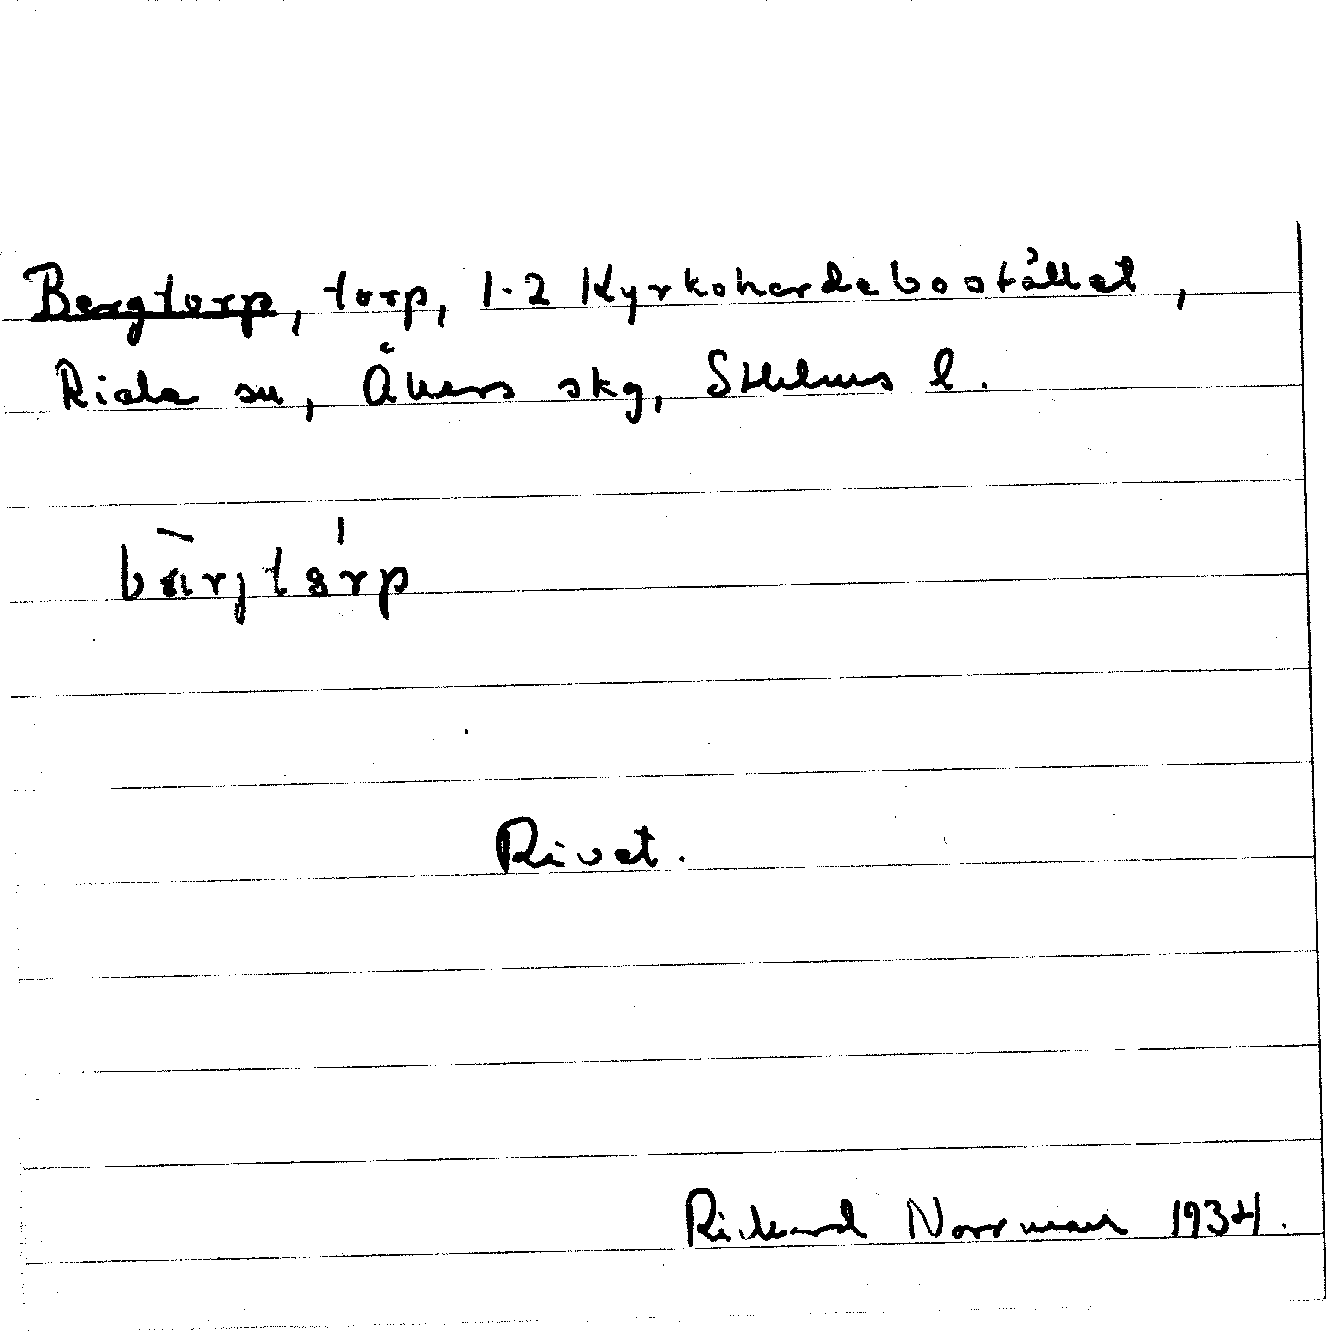 Bergtorp, torp, 1-2 Kyrkoherdebostället,
Riala sn, Åkers skg, Sthlms l.
bärjtårp
Rivet.
Rickard Norrman 1934.